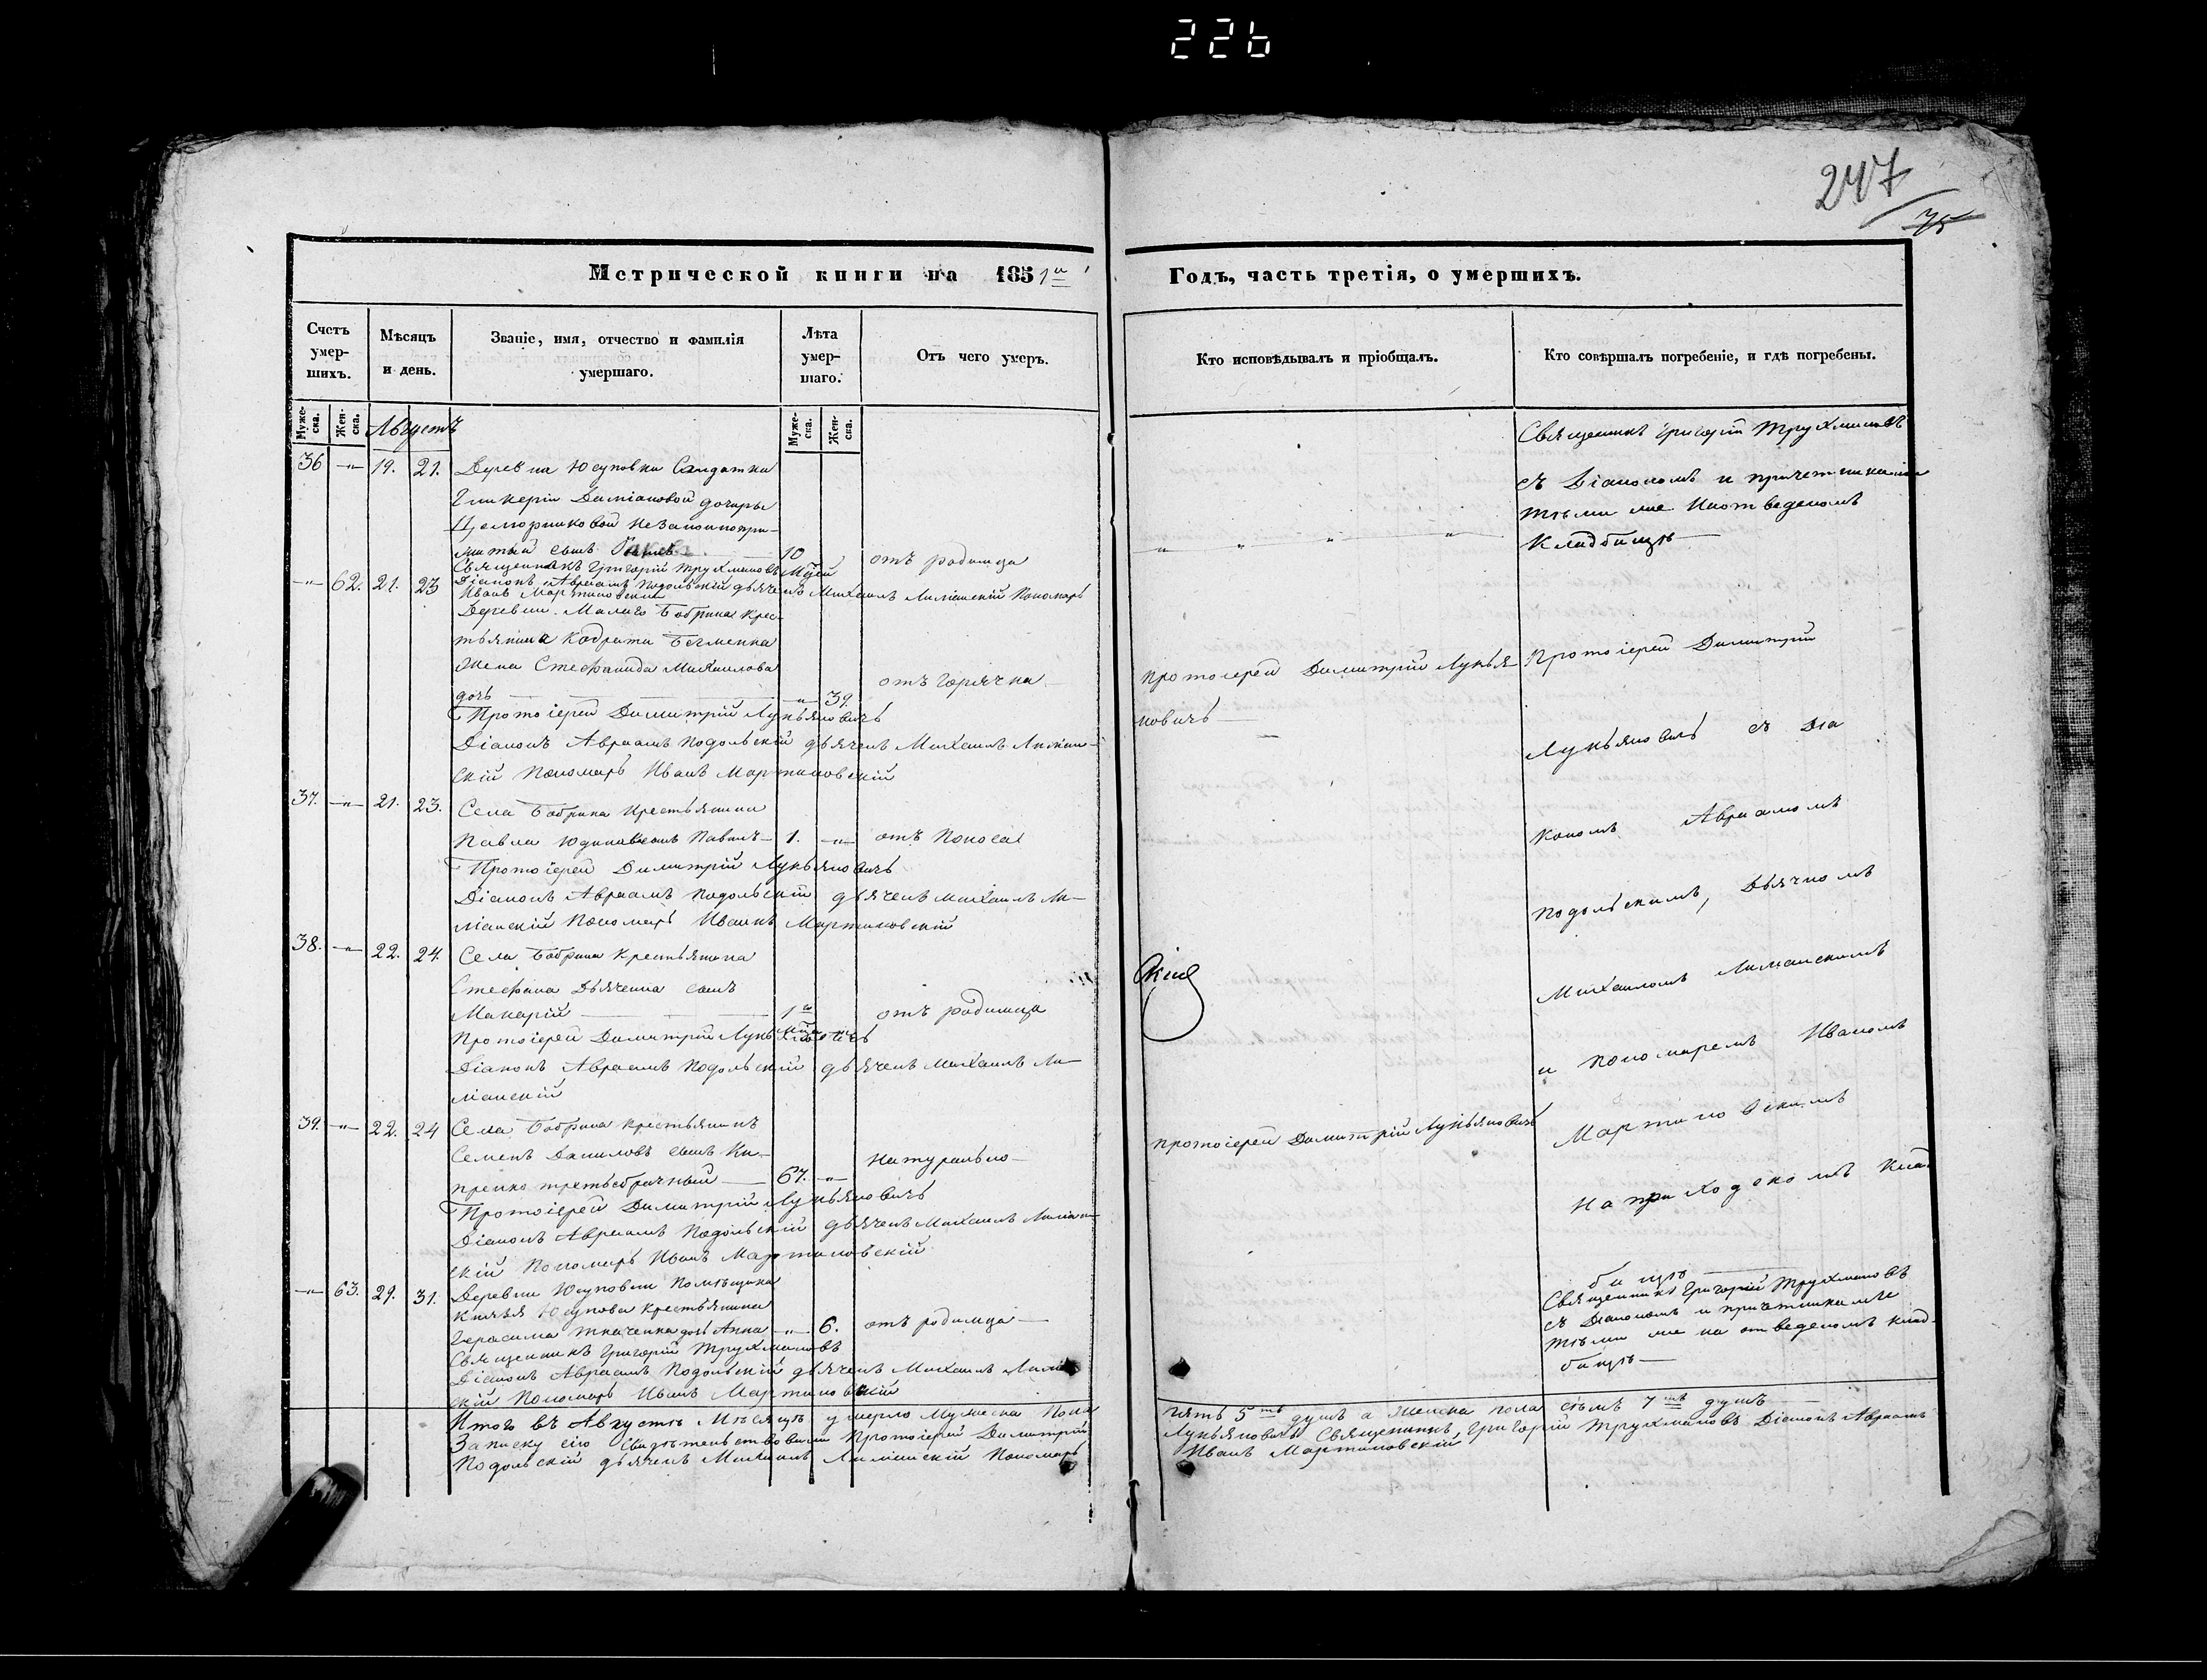 226
247
75
Метрической книги на 1851й
Годъ, часть третія, о умершихъ.
Счетъ умер-шихъ.
Мѣсяцъ и день.
Званіе, имя, отчество и фамилія умершаго.
Лѣта умер-шаго.
Отъ чего умеръ.
Кто исповѣдывалъ и пріобщалъ.
Кто совѣршалъ погребеніе, и гдѣ погребены.
Муже-ска.
Жен-ска.
Августъ
Муже-ска.
Жен-ска.
36 —„— 19. 21. Деревна Юсуповки Салдатки
Гликеріи Даміановой дочиры
незаконопри-
житый сынъ
10 мцей
отъ родимца
Священникъ Григорій Трухмановъ
Діаконъ Авраамъ Подольскій дьячекъ Михаилъ Лиманскій Пономарь
Иванъ Мартиновскій
Священникъ Григорій Трухмановъ
съ Діакономъ и причетниками
тѣми же Наотведеномъ
Кладбищѣ —
—„— 62. 21. 23 Деревни Малаго Бобрика крес-
тьянина Кодрата
Жена Стефанида Михаилова
дочь — —„— 39.
отъ горячки
Протоіерей Димитрій Лукьяновичъ
Діаконъ Авраамъ Подольскій дьячекъ Михаилъ Лиман-
скій Пономарь Иванъ Мартиновскій
Протоіерей Димитрій Лукья-
новичъ —
Протоіерей Димитрій
Лукьяновичъ съ Діа
кономъ Авраамомъ
Подольскимъ, Дьячкомъ
Михаиломъ Лиманскимъ
и Пономаремъ Иваномъ
Мартиновскимъ
На приходскомъ Клад
бищѣ —
37. —„— 21. 23. Села Бобрика Крестьянина
Павла Юдина сынъ Павилъ — 1. —„— отъ Поноса
Протоіерей Димитрій Лукьяновичъ
Діаконъ Авраамъ Подольскій дьячекъ Михаилъ Ли-
манскій Пономарь Иванъ Мартиновскій
38. —„— 22. 24. Села Бобрика Крестьянина
Стефана Дьяченка сынъ
Макарій — отъ родимца
Протоіерей Димитрій Лукьяновичъ
Діаконъ Авраамъ Подольскій дьячекъ Михаилъ Ли-
манскій
39. —„— 22. 24 Села Бобрика крестьянинъ
Семенъ Даниловъ сынъ Ки-
прейко третьебрачный — 67. —„—
Натурально —
Протоіерей Димитрій Лукьяновичъ
Діаконъ Авраамъ Подольскій дьячекъ Михаилъ Лиман-
скій Пономарь Иванъ Мартиновскій
Протоіерей Димитрій Лукьяновичъ
—„— 63. 29. 31. Деревни Юсуповки Помѣщика
Князя Юсупова крестьянина
Герасима Ткаченка дочь Анна —„— 6. отъ родимца —
Священникъ Григорій Трухмановъ
Діаконъ Авраамъ Подольскій дьячекъ Михаилъ Лиман
скій Пономарь Иванъ Мартиновскій
Священникъ Григорій Трухмановъ
съ Діакономъ и причетниками
тѣми же на отведеномъ клад-
бищѣ —
Итого въ Августѣ Мѣсяцѣ умерло Мужеска Пола пять 5ть душъ а Женска пола семь 7мь душъ —
Записку сію Свидѣтельствовали Протоіерей Димитрій Лукьяновичъ Священникъ Григорій Трухмановъ Діаконъ Авраамъ
Подольскій дьячекъ Михаилъ Лиманскій Пономарь Иванъ Мартиновскій